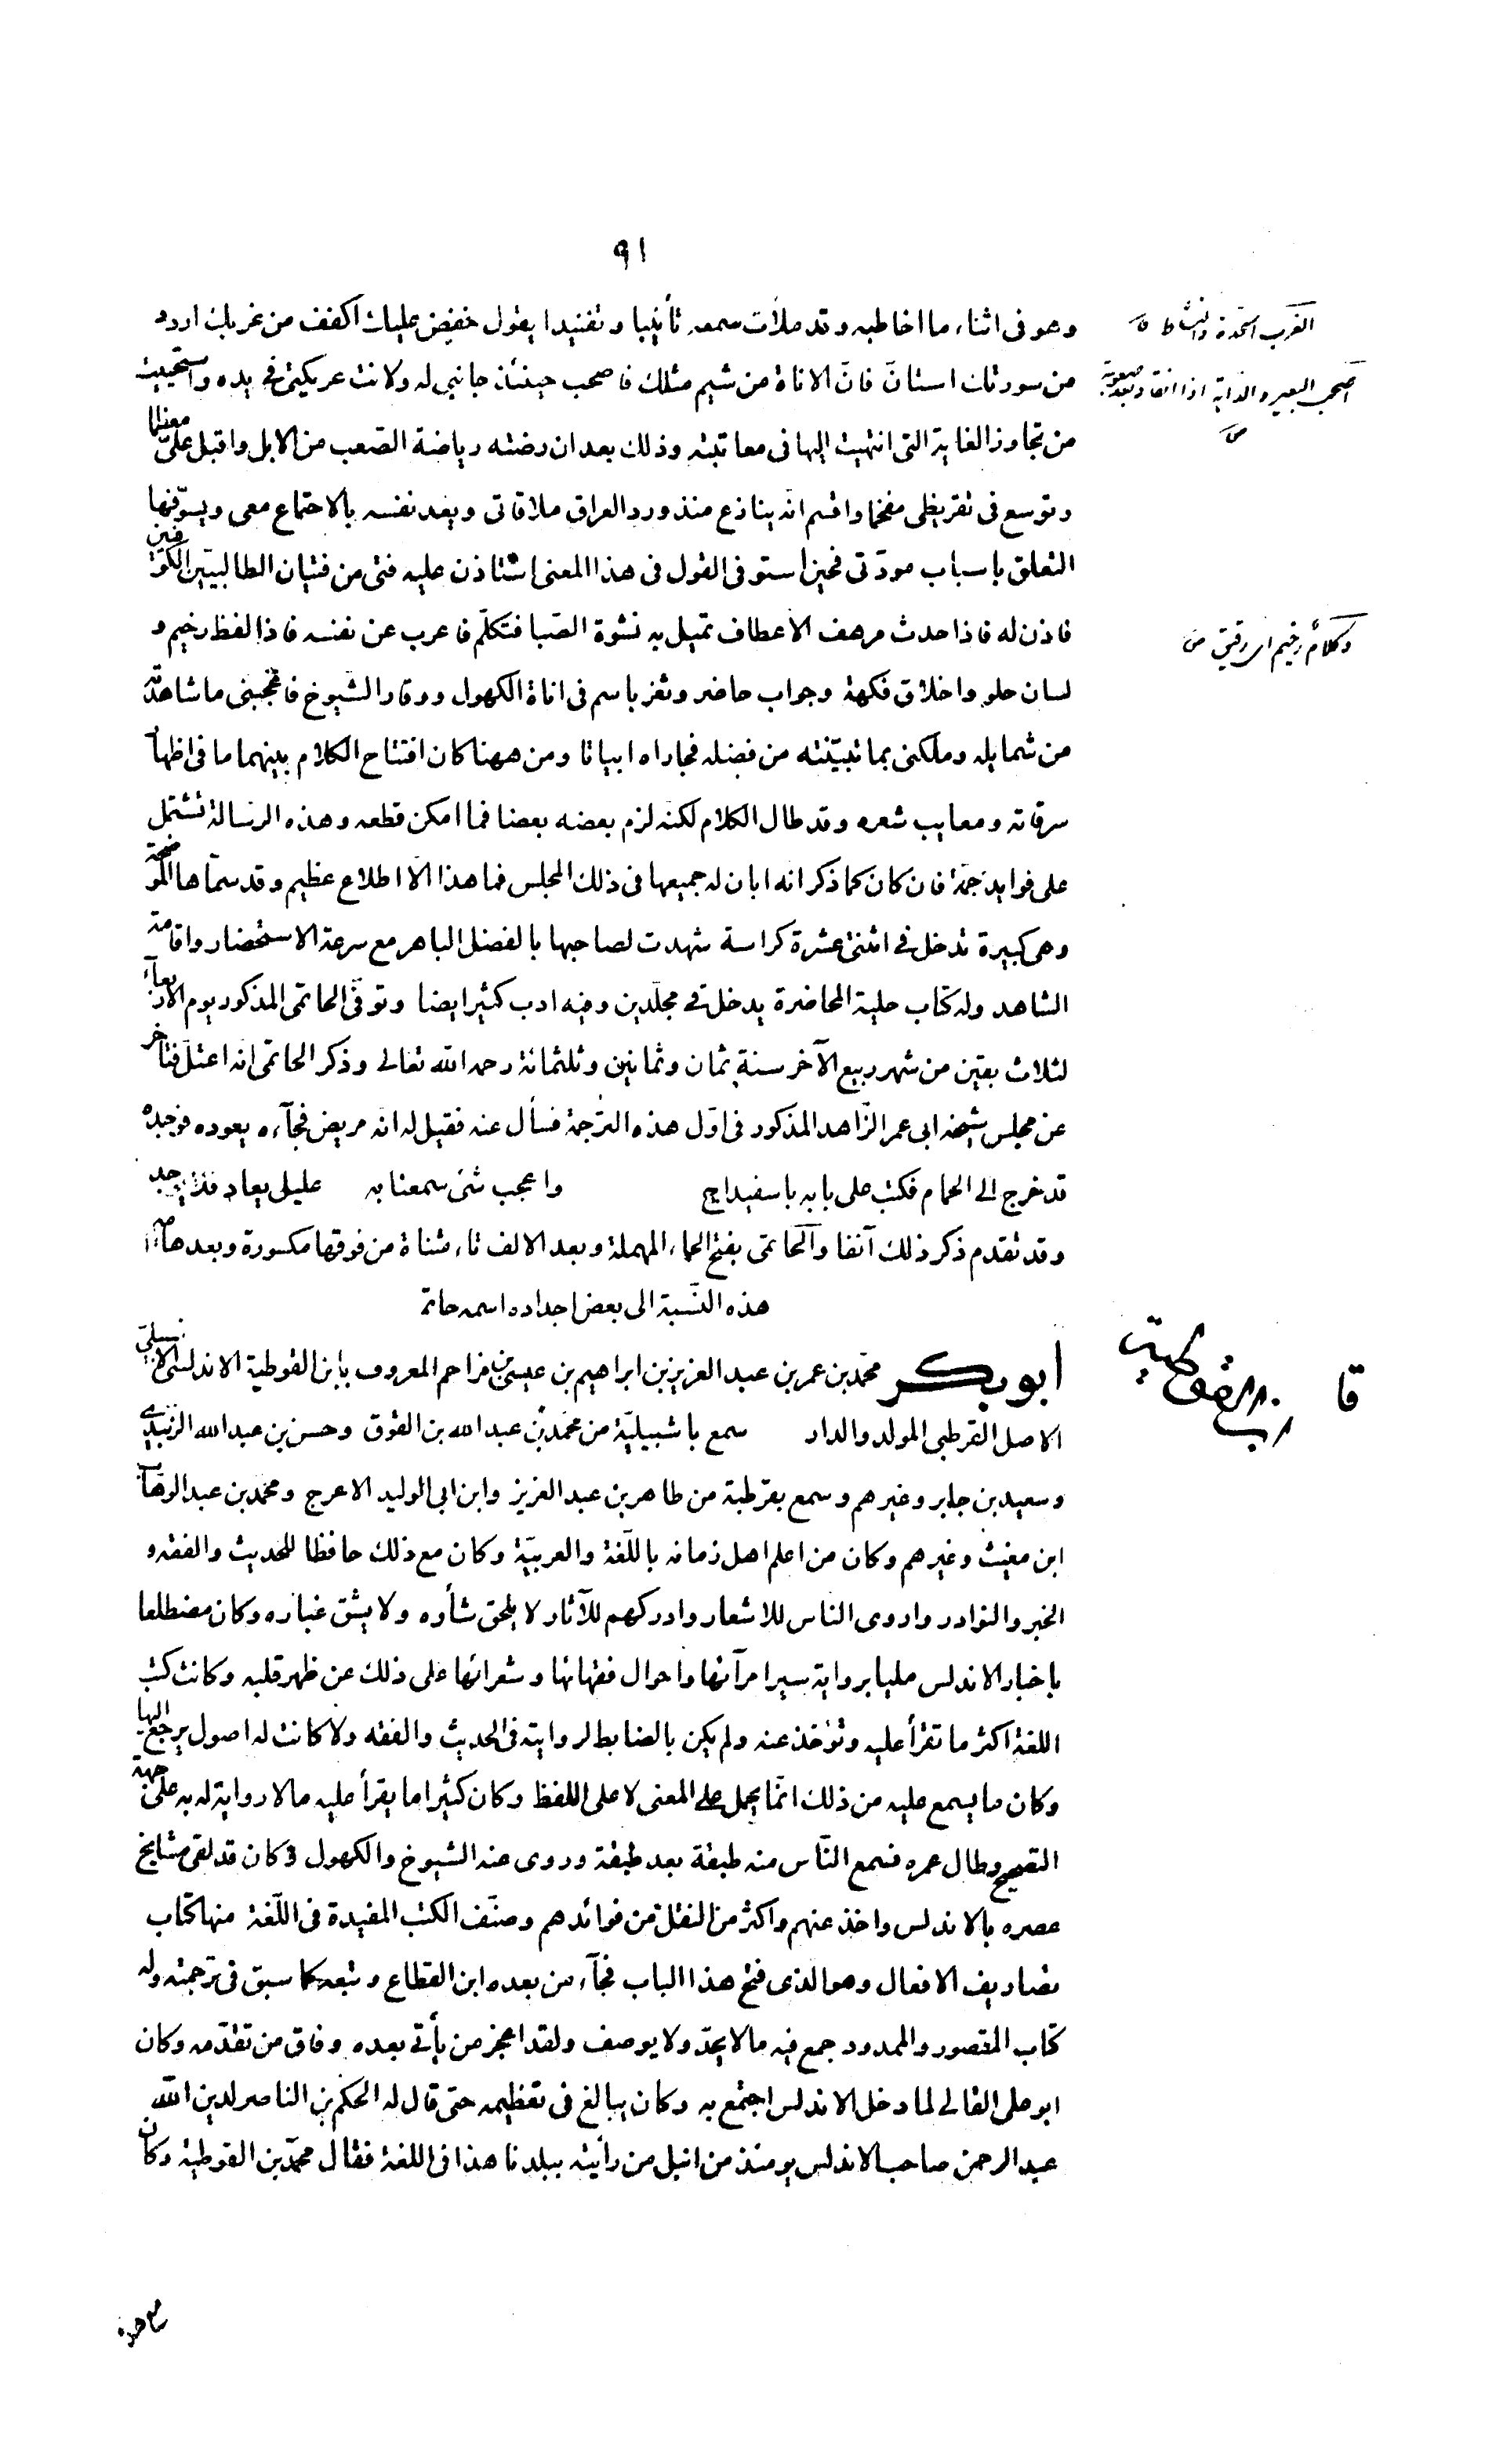 ٩١
وهو فى اثناء ما اخاطبه وقد ملأت سمعه تأنيبا وتفنيدا يقول خفض عليك اكفف من غربك اردد
من سورتك استأن فان الاناة من شيم مثلك فاصحب حينئذ جانبي له ولانت عريكتي في يده واستحييت
من تجاوز الغاية التى انتهيت اليها فى معاتبته وذلك بعد ان رضته رياضة الصعب من الابل واقبل علىّ معظما
وتوسع فى تقريظى مفخما واقسم انه ينازع منذ ورد العراق ملاقاتى ويعد نفسه بالاجتماع معى ويسوّفها
التعلق باسباب مودّتى فحين استوفى القول فى هذا المعنى استاذن عليه فتى من فتيان الطالبيين الكوفيين
فاذن له فاذا حدث مرهف الاعطاف تميل به نشوة الصبا فتكلم فاعرب عن نفسه فاذا لفظ رخيم و
لسان حلو واخلاق فكهة وجواب حاضر وثغر باسم فى اناة الكهول ووقار الشيوخ فاعجبنى ما شاهدته
من شمايله وملكنى بما تبيّنته من فضله فجاراه ابياتا ومن ههنا كان افتتاح الكلام بينهما فى اظهار
سرقاته ومعايب شعره وقد طال الكلام لكنه لزم بعضه بعضا فما امكن قطعه وهذه الرسالة تشتمل
على فوايد جمة فان كان كما ذكر انه ابان له جميعها فى ذلك المجلس فما هذا الا اطلاع عظيم وقد سمّاها الموضحة
وهى كبيرة تدخل فى اثنتى عشرة كراسة شهدت لصاحبها بالفضل الباهر مع سرعة الاستحضار واقامة
الشاهد وله كتاب حلية المحاضرة يدخل في مجلدين وفيه ادب كثير ايضا وتوفّى الحاتمى المذكور يوم الاربعاء
لثلاث بقين من شهر ربيع الآخر سنة ثمان وثمانين وثلثمائة رحمه الله تعالى وذكر الحاتمى انه اعتل فتاخر
عن مجلس شيخه ابى عمر الزّاهد المذكور فى اول هذه الترجمة فسأل عنه فقيل له انه مريض فجآءه يعوده فوجده
قد خرج الى الحمام فكتب على بابه باسفيداج واعجب شئ سمعنا به عليل يعاد فلا يوجد
وقد تقدم ذكر ذلك آنفا والحاتمى بفتح الحاء المهملة وبعد الالف تاء مثناة من فوقها مكسورة وبعدها ميم
هذه النسبة الى بعض اجداده اسمه حاتم
أبو بكر محمد بن عمر بن عبد العزيز بن ابراهيم بن عيسى بن مزاحم المعروف بابن القوطية الاندلسى الاشبيلى
الاصل القرطبى المولد والدار سمع باشبيليّة من محمد بن عبد الله بن القوق وحسن بن عبد الله الزبيدى
وسعيد بن جابر وغيرهم وسمع بقرطبة من طاهر بن عبد العزيز وابن ابى الوليد الاعرج ومحمد بن عبد الوهاب
ابن مغيث وغيرهم وكان من اعلم اهل زمانه باللّغة والعربيّة وكان مع ذلك حافظا للحديث والفقه و
الخبر والنوادر واروى الناس للاشعار وادركهم للآثار لا يلحق شأوه ولا يشق غباره وكان مضطلعا
باخبار الاندلس مليا برواية سير امرآئها واحوال فقهائها وشعرائها على ذلك عن ظهر قلبه وكانت كتب
اللغة اكثر ما تقرأ عليه وتؤخذ عنه ولم يكن بالضابط لروايته فى الحديث والفقه ولا كانت له اصول يرجع اليها
وكان ما يسمع عليه من ذلك انّما يحمل على المعنى لا على اللفظ وكان كثيرا ما يقرأ عليه ما لا رواية له به على جهة
التصحيح وطال عمره فسمع النّاس منه طبقة بعد طبقة وروى عنه الشيوخ والكهول وكان قد لقى مشايخ
عصره بالاندلس واخذ عنهم واكثر من النقل من فوائدهم وصنّف الكتب المفيدة فى اللّغة منها كتاب
تصاريف الافعال وهو الذى فتح هذا الباب فجآء من بعده ابن القطاع وتبعه كما سبق فى ترجمته وله
كتاب المقصور والممدود جمع فيه ما لا يحدّ ولا يوصف ولقد اعجز من يأتى بعده وفاق من تقدّمه وكان
ابو على القالى لما دخل الاندلس اجتمع به وكان يبالغ فى تعظيمه حتى قال له الحكم بن الناصر لدين الله
عبد الرحمن صاحب الاندلس يومئذ من انبل من رأيته ببلدنا هذا فى اللغة فقال محمد بن القوطية وكان
الغرب الحدة والنشاط
اصحب البعير والدابة اذا انقاد بعد صعوبة
وكلام رخيم اى رقيق
ابن القوطية